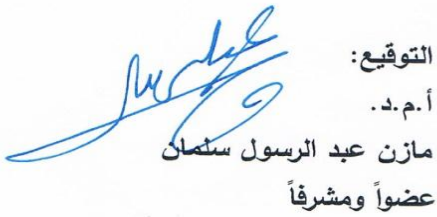 التوقيع:
أ.م.د.
مازن عبد الرسول سلمان
عضواً ومشرفاً